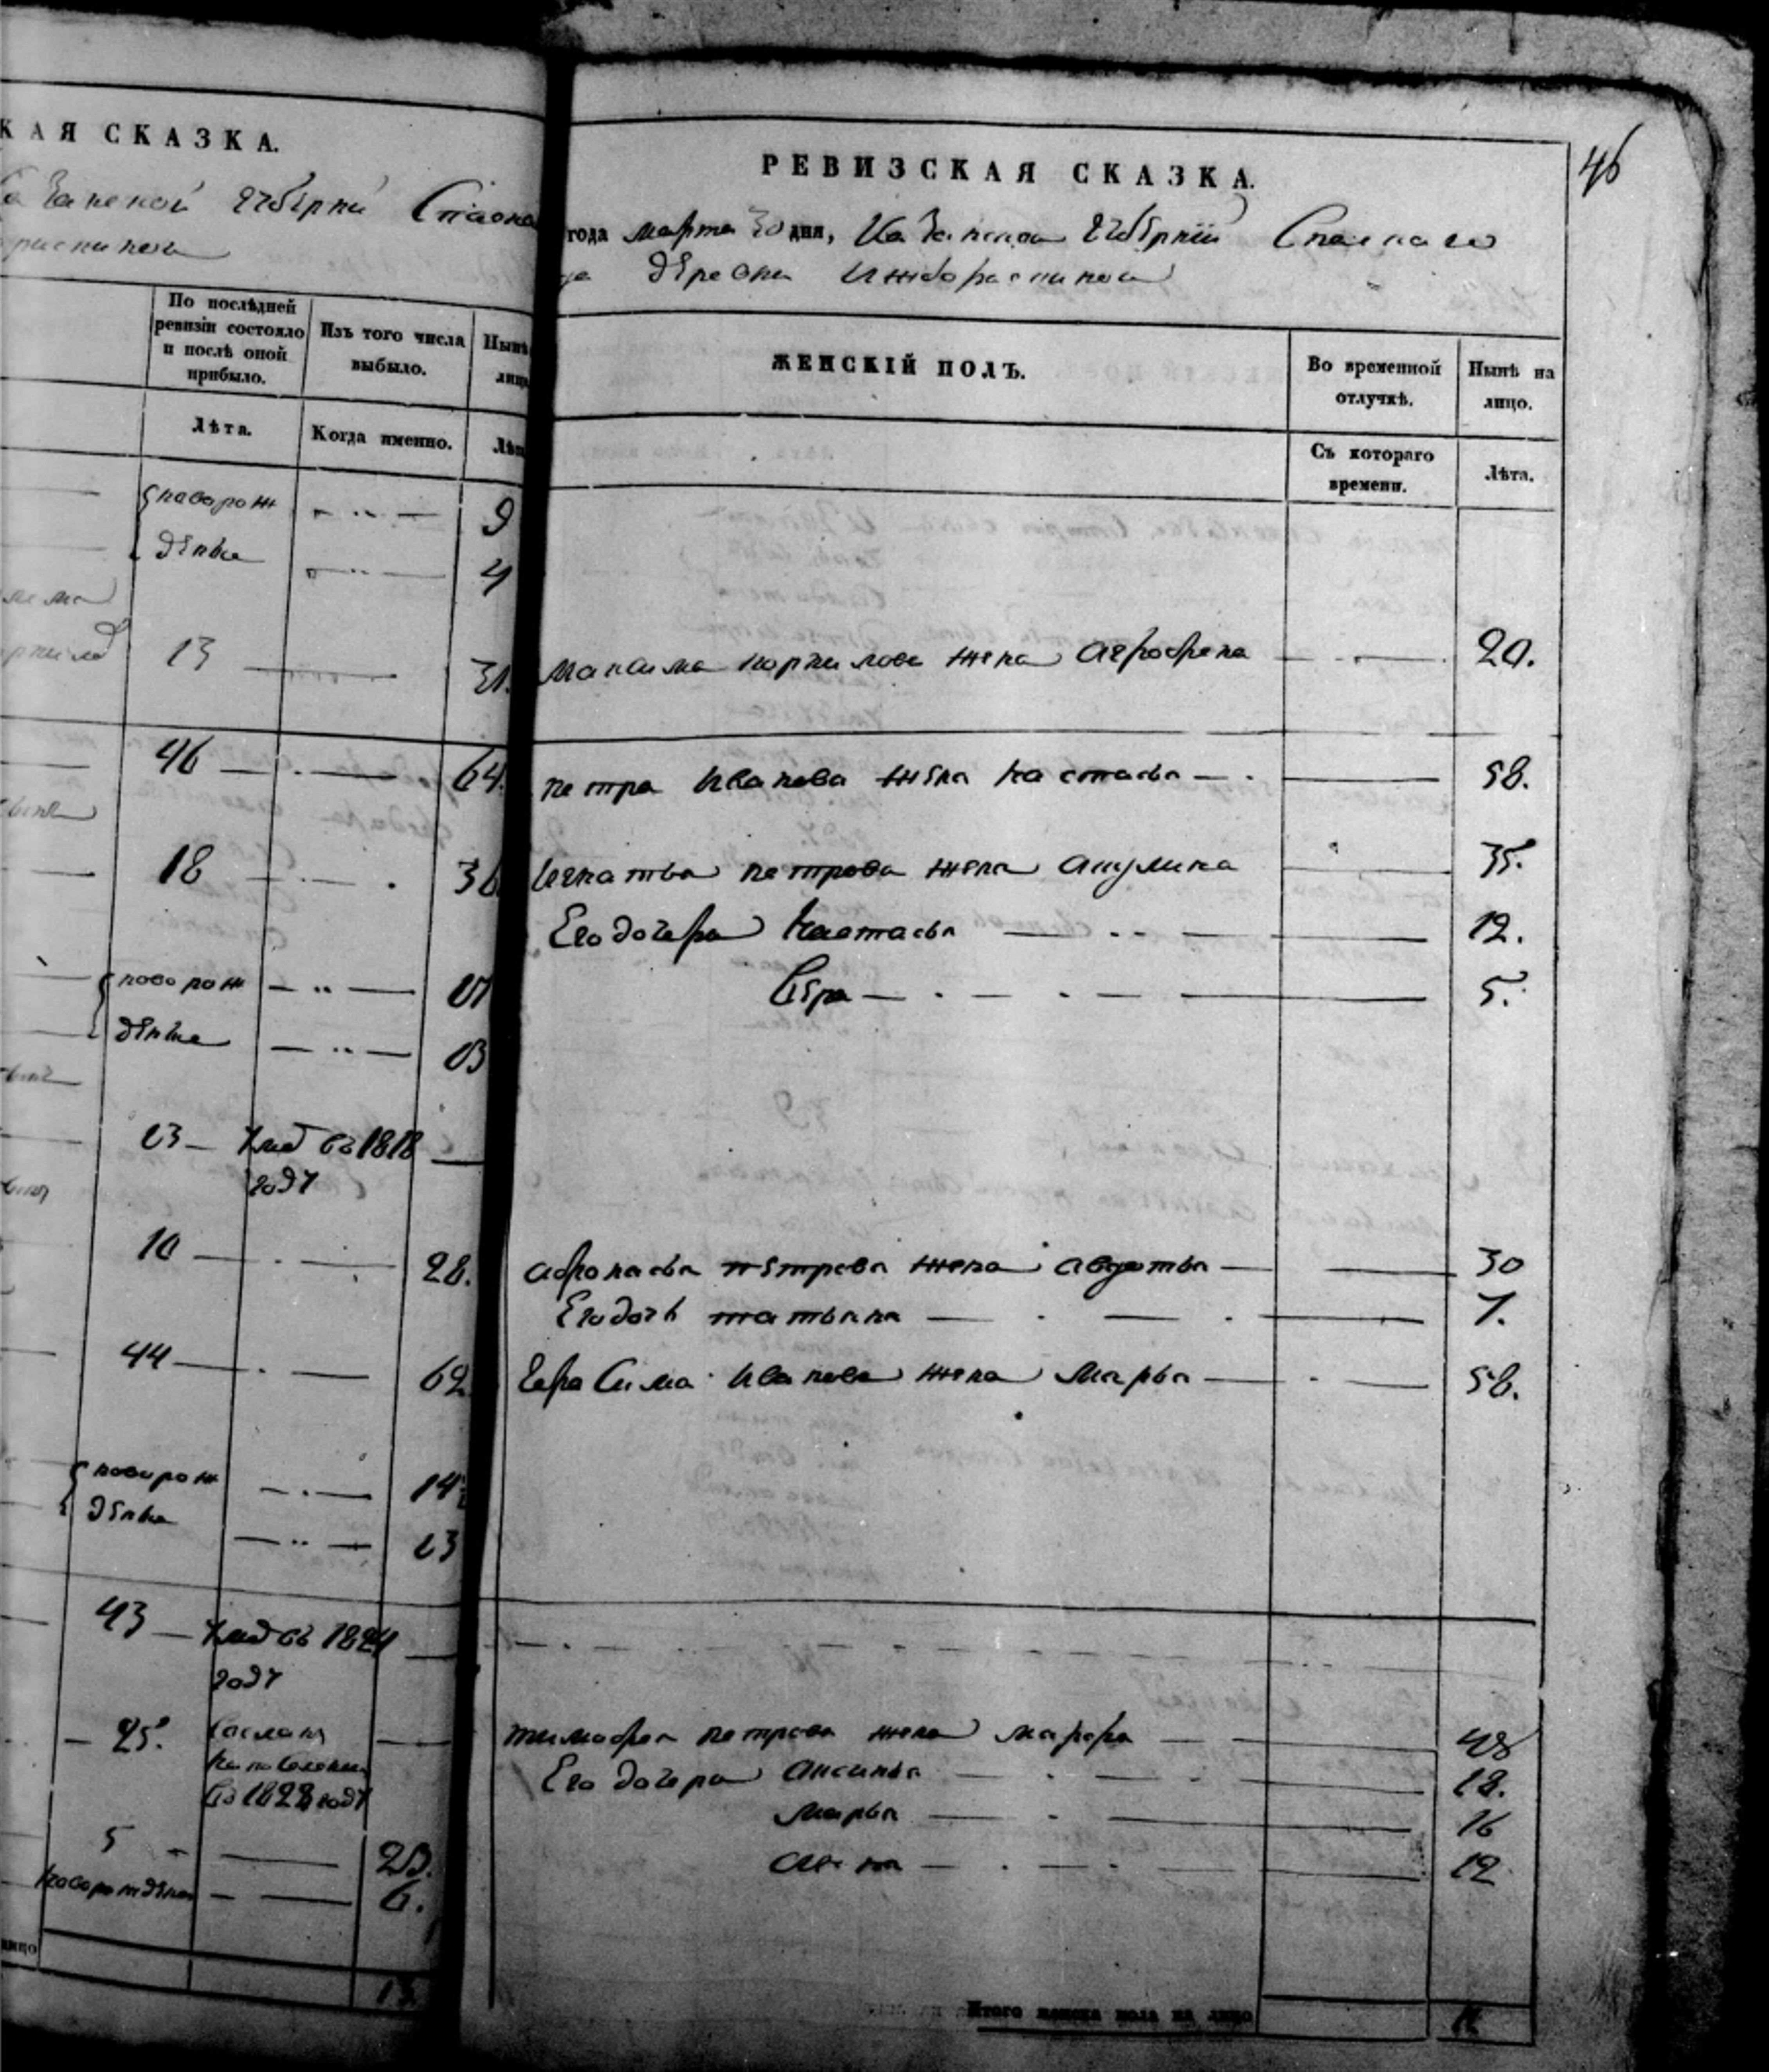 КАЯ СКАЗКА.
Казанской Губерніи Спаска
По послѣдней ревизіи состояло и послѣ оной прибыло.
Изъ того числа выбыло.
Нынѣ лицо
Лѣта.
Когда именно.
Лѣт
новорож 9
денные 4
13 31.
46 64.
18 36
новорож 17
денные 13
13 — умер въ 1818
году
10 28.
44 62
новорож 14
денные 13
43 — умер въ 1824
году
25. Сослан
на поселение
въ 1828 году
5 23.
новорожденной 6.
лицо
13
46
РЕВИЗСКАЯ СКАЗКА.
года марта 30 дня, Казанской Губерніи Спаскаго
деревни
ЖЕНСКІЙ ПОЛЪ.
Во временной отлучкѣ.
Нынѣ на лицо.
Съ котораго времени.
Лѣта.
Максима Корнилова жена Аграфена 20.
Петра Иванова жена Настасья 58.
Игнатья Петрова жена Акулина 35.
Его дочери Настасья 12.
Вера 5.
Афонасья Петрова жена Авдотья 30
Его дочь Татьяна 7.
Герасима Иванова жена Марья 58.
Тимофея Петрова жена Марфа 48
Его дочери Аксинья 18.
Марья 16
Анна 12
Итого женска пола на лицо
12